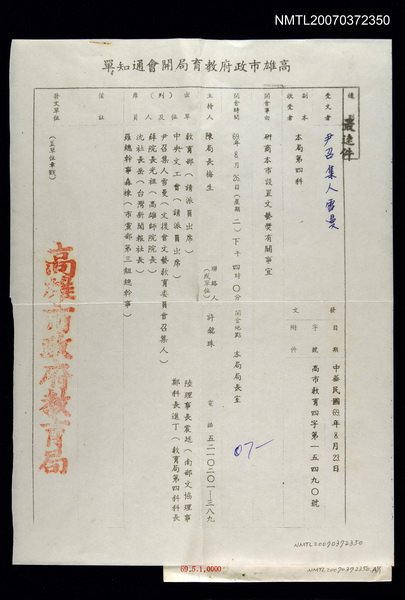 NMTL20070372350
高雄市政府教育局開會通知單
最速件
受文者
尹召集人雪曼
副本收受者
本局第四科
發文
日期
中華民國69年8月23日
字號
高市教育四字第一五四九〇號
附件
開會事由
研商本市設置文藝獎有關事宜
開會時間
69年8月26日(星期二)下午四時〇分
開會地點
本局局長室
主持人
陳局長梅生
聯絡人(或單位)
許龍珠
電話
五二一〇二〇一—三八九
出席單位(及列席人員)
教育部(請派員出席)
中央文工會(請派員出席)
尹召集人雪曼(文復會文藝教育委員會召集人)
薛院長光祖(高雄師院院長)
沈社長岳(台灣新聞報社長)
羅總幹事森棟(市黨部第三組總幹事)
陸理事長震廷(南部文協理事
鄭科長進丁(教育局第四科科長
備註
發文單位
(蓋單位章戳)
高雄市政府教育局
07-
NMTL20070372350
69.5.1,0000
NMTL20070372350